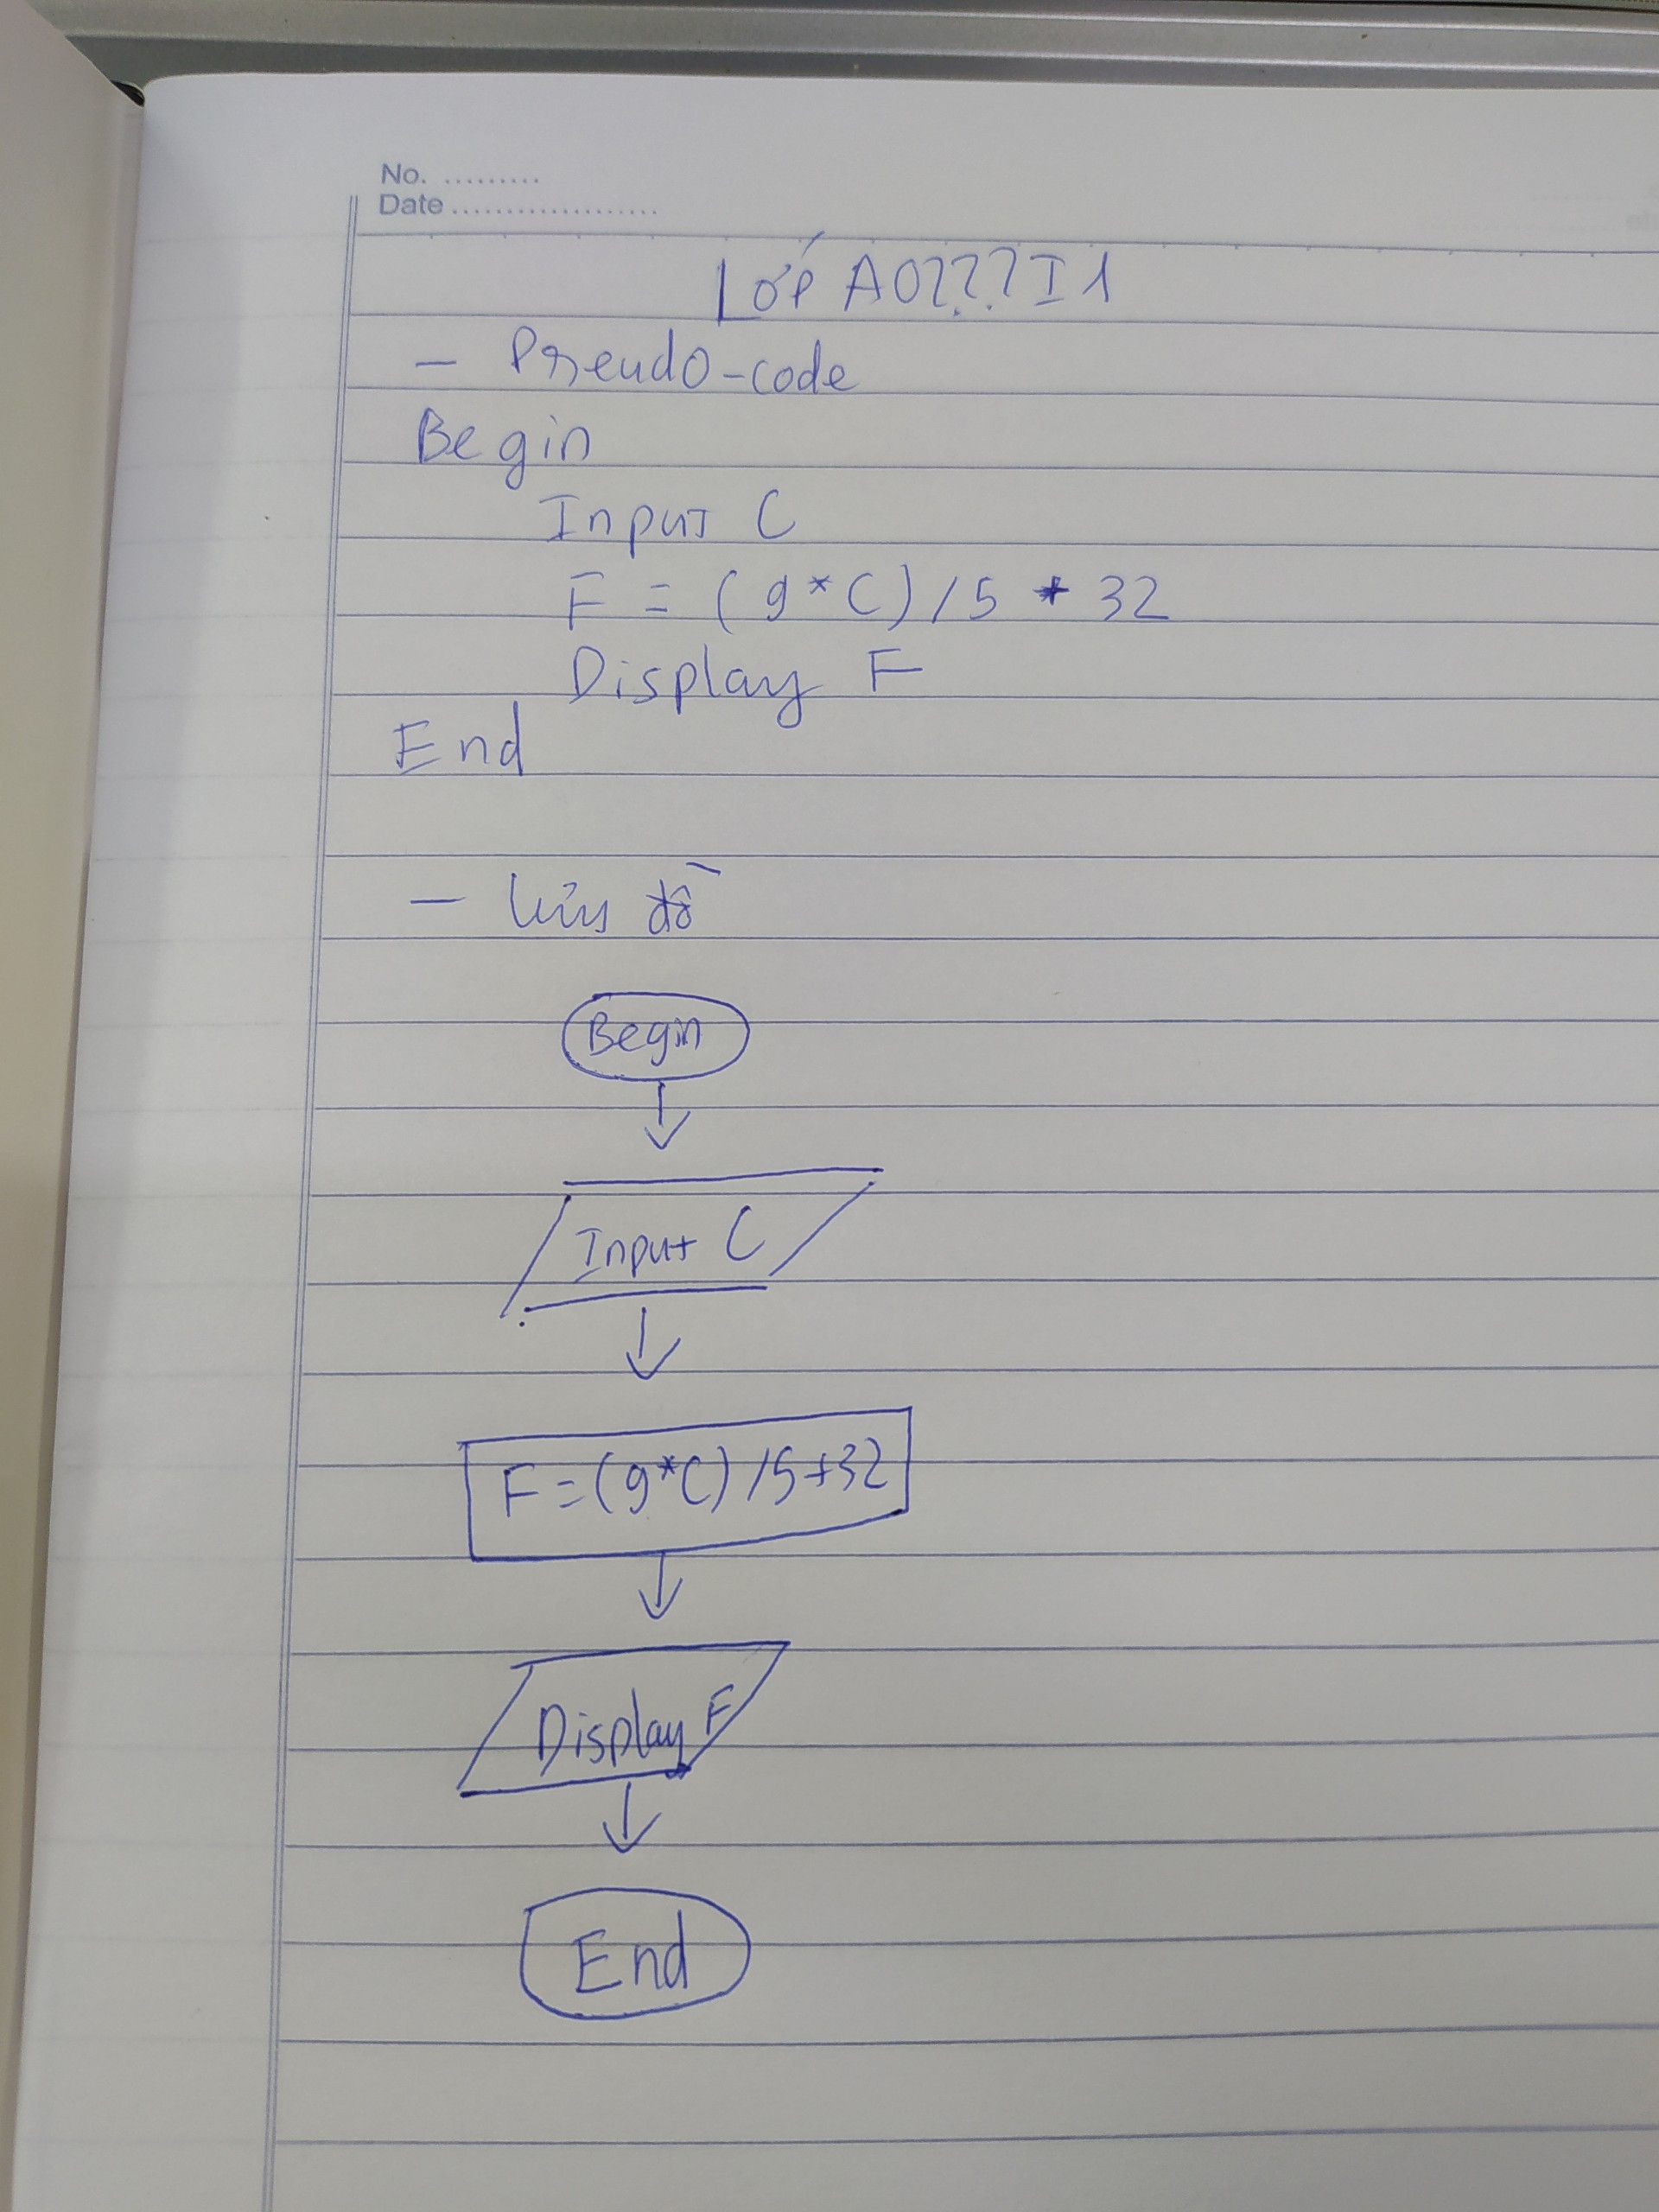 No. .........
Date ...................
Lớp A0222I1
- Pseudo-code
Begin
Input C
F = (9*C)/5 + 32
Display F
End
- lưu đồ
Begin
Input C
F=(9*C)/5+32
Display F
End